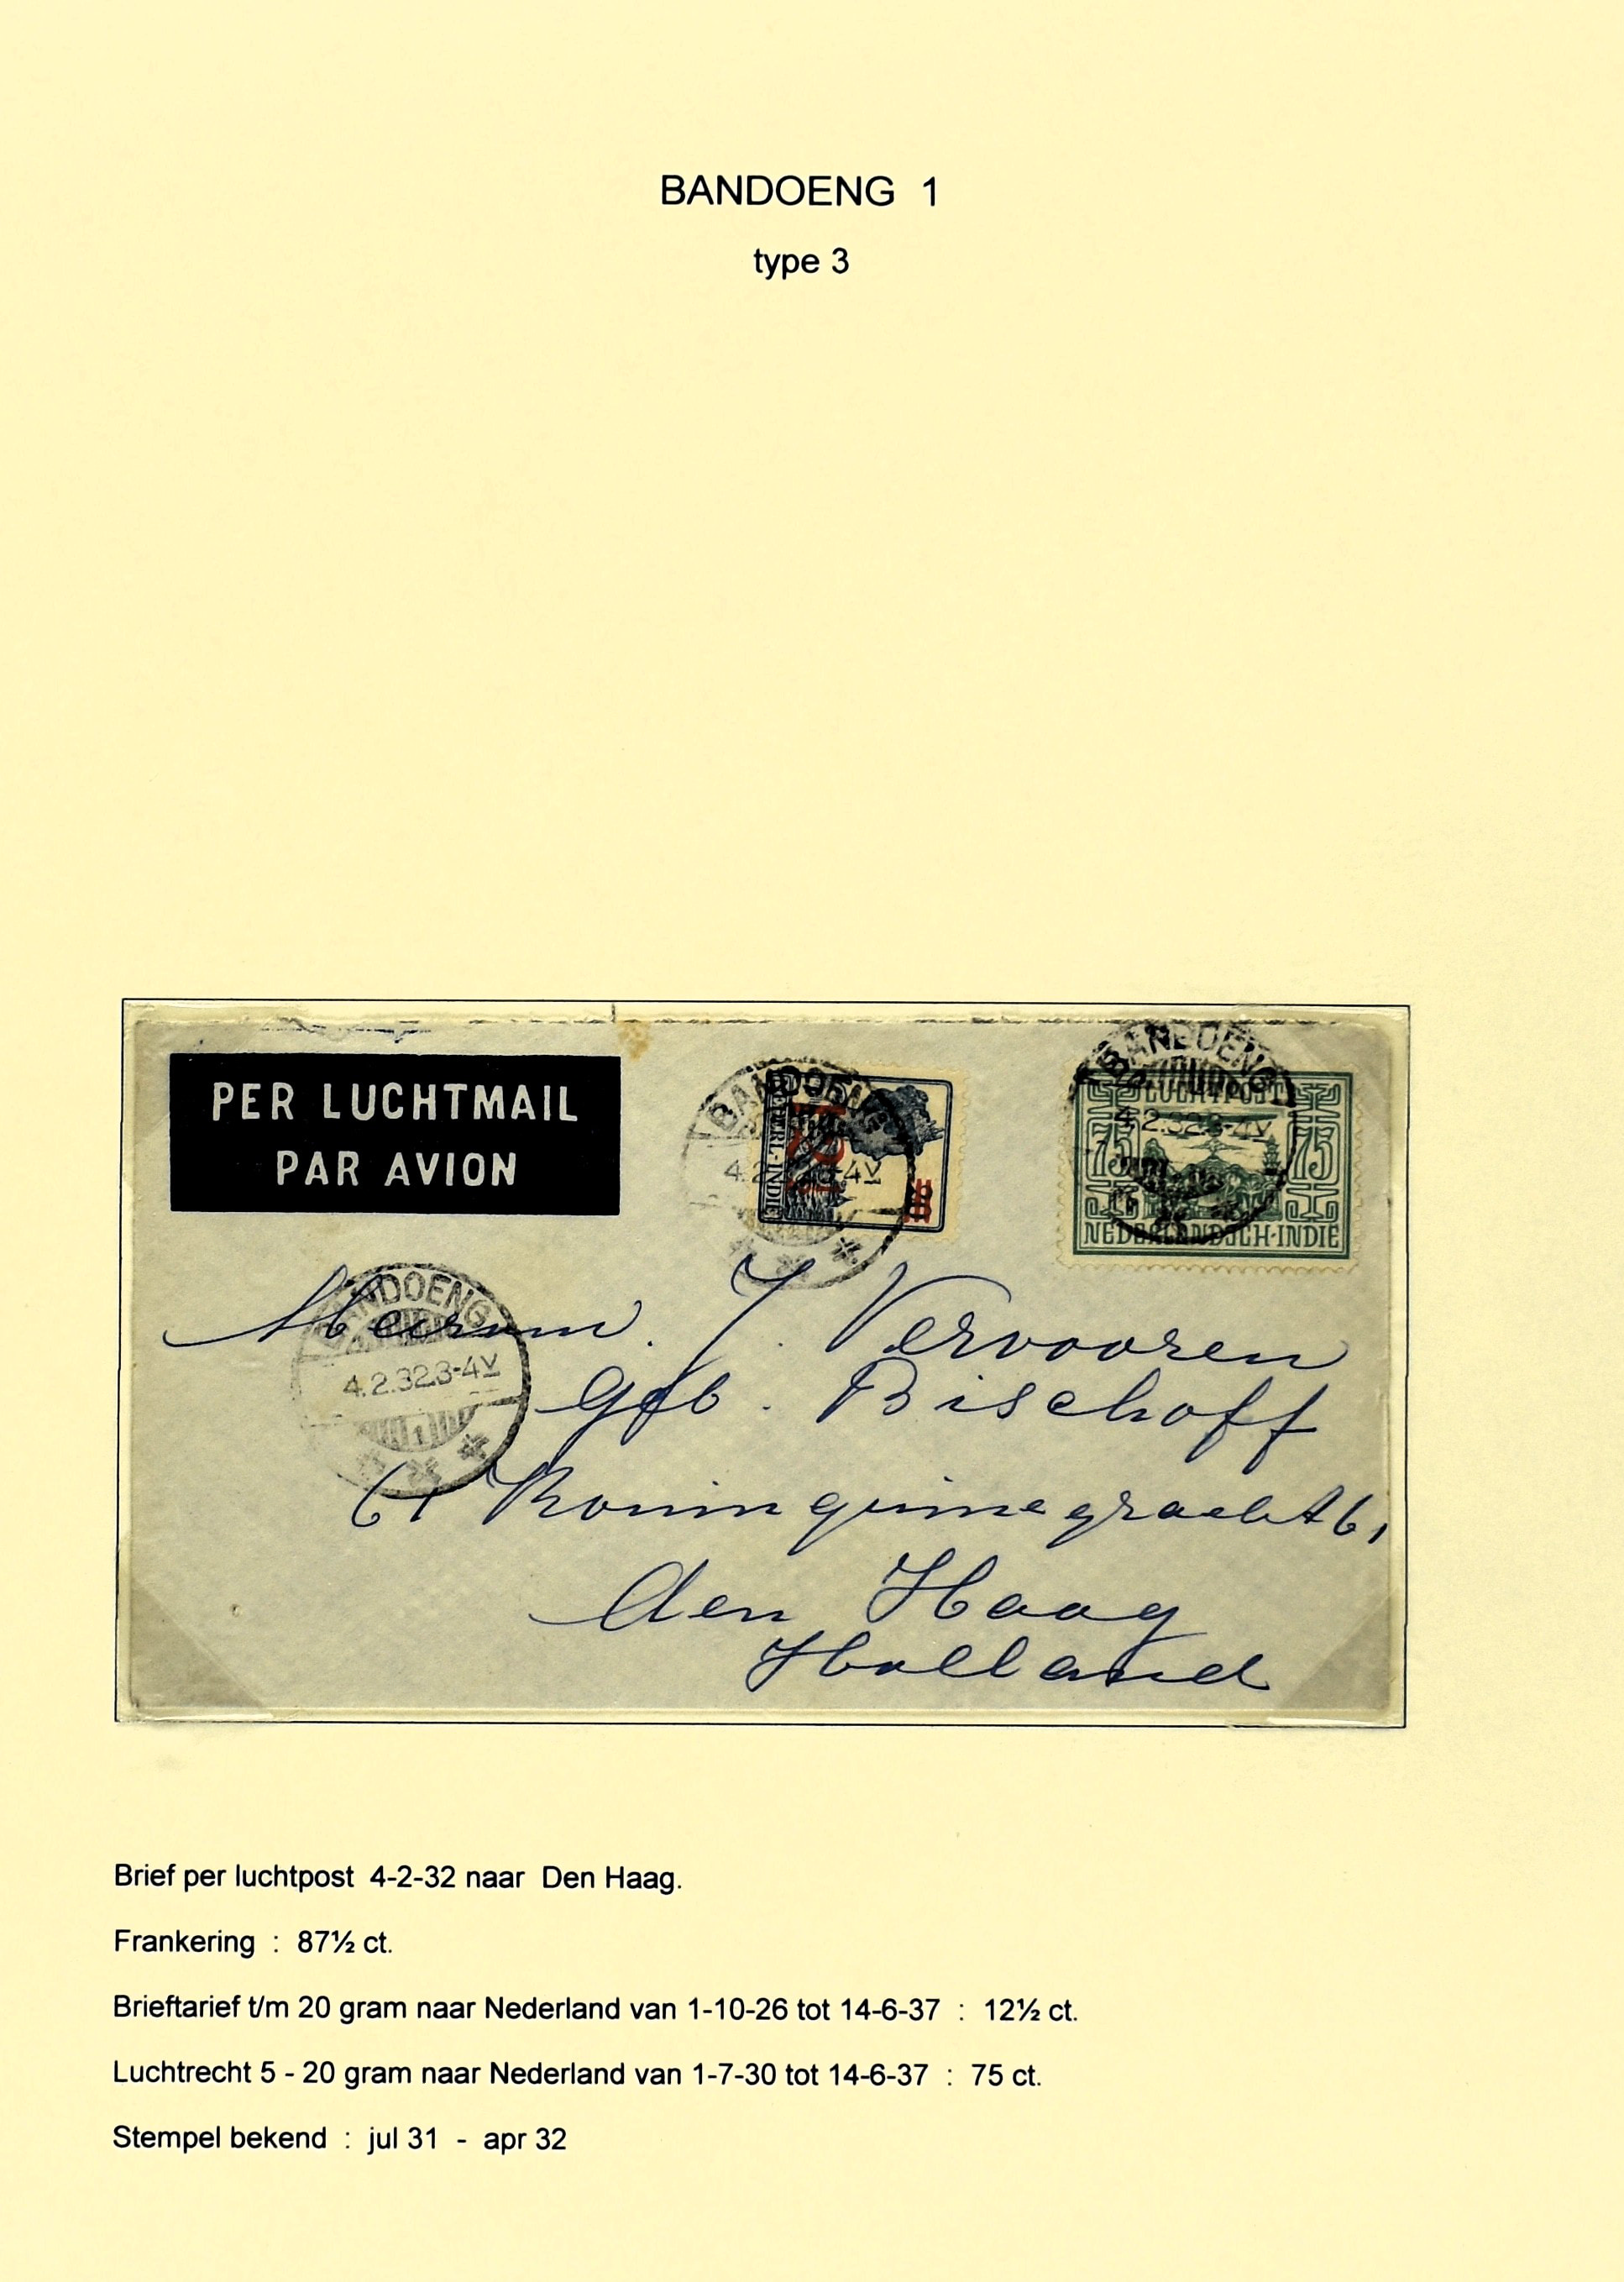 BANDOENG 1
type 3
PER LUCHTMAIL
PAR AVION
BANDOENG
4.2.32.3-4V
NED.-INDIË
12½
10
BANDOENG
4.2.32.3-4V
LUCHTPOST
75 75
NEDERLANDSCH-INDIE
BANDOENG
4.2.32.3-4V
1
Mevrouw. J. Vervooren
Geb. Bischoff
61 Koninginnegracht 61
den Haag
Holland
Brief per luchtpost 4-2-32 naar Den Haag.
Frankering : 87½ ct.
Brieftarief t/m 20 gram naar Nederland van 1-10-26 tot 14-6-37 : 12½ ct.
Luchtrecht 5 - 20 gram naar Nederland van 1-7-30 tot 14-6-37 : 75 ct.
Stempel bekend : jul 31 - apr 32